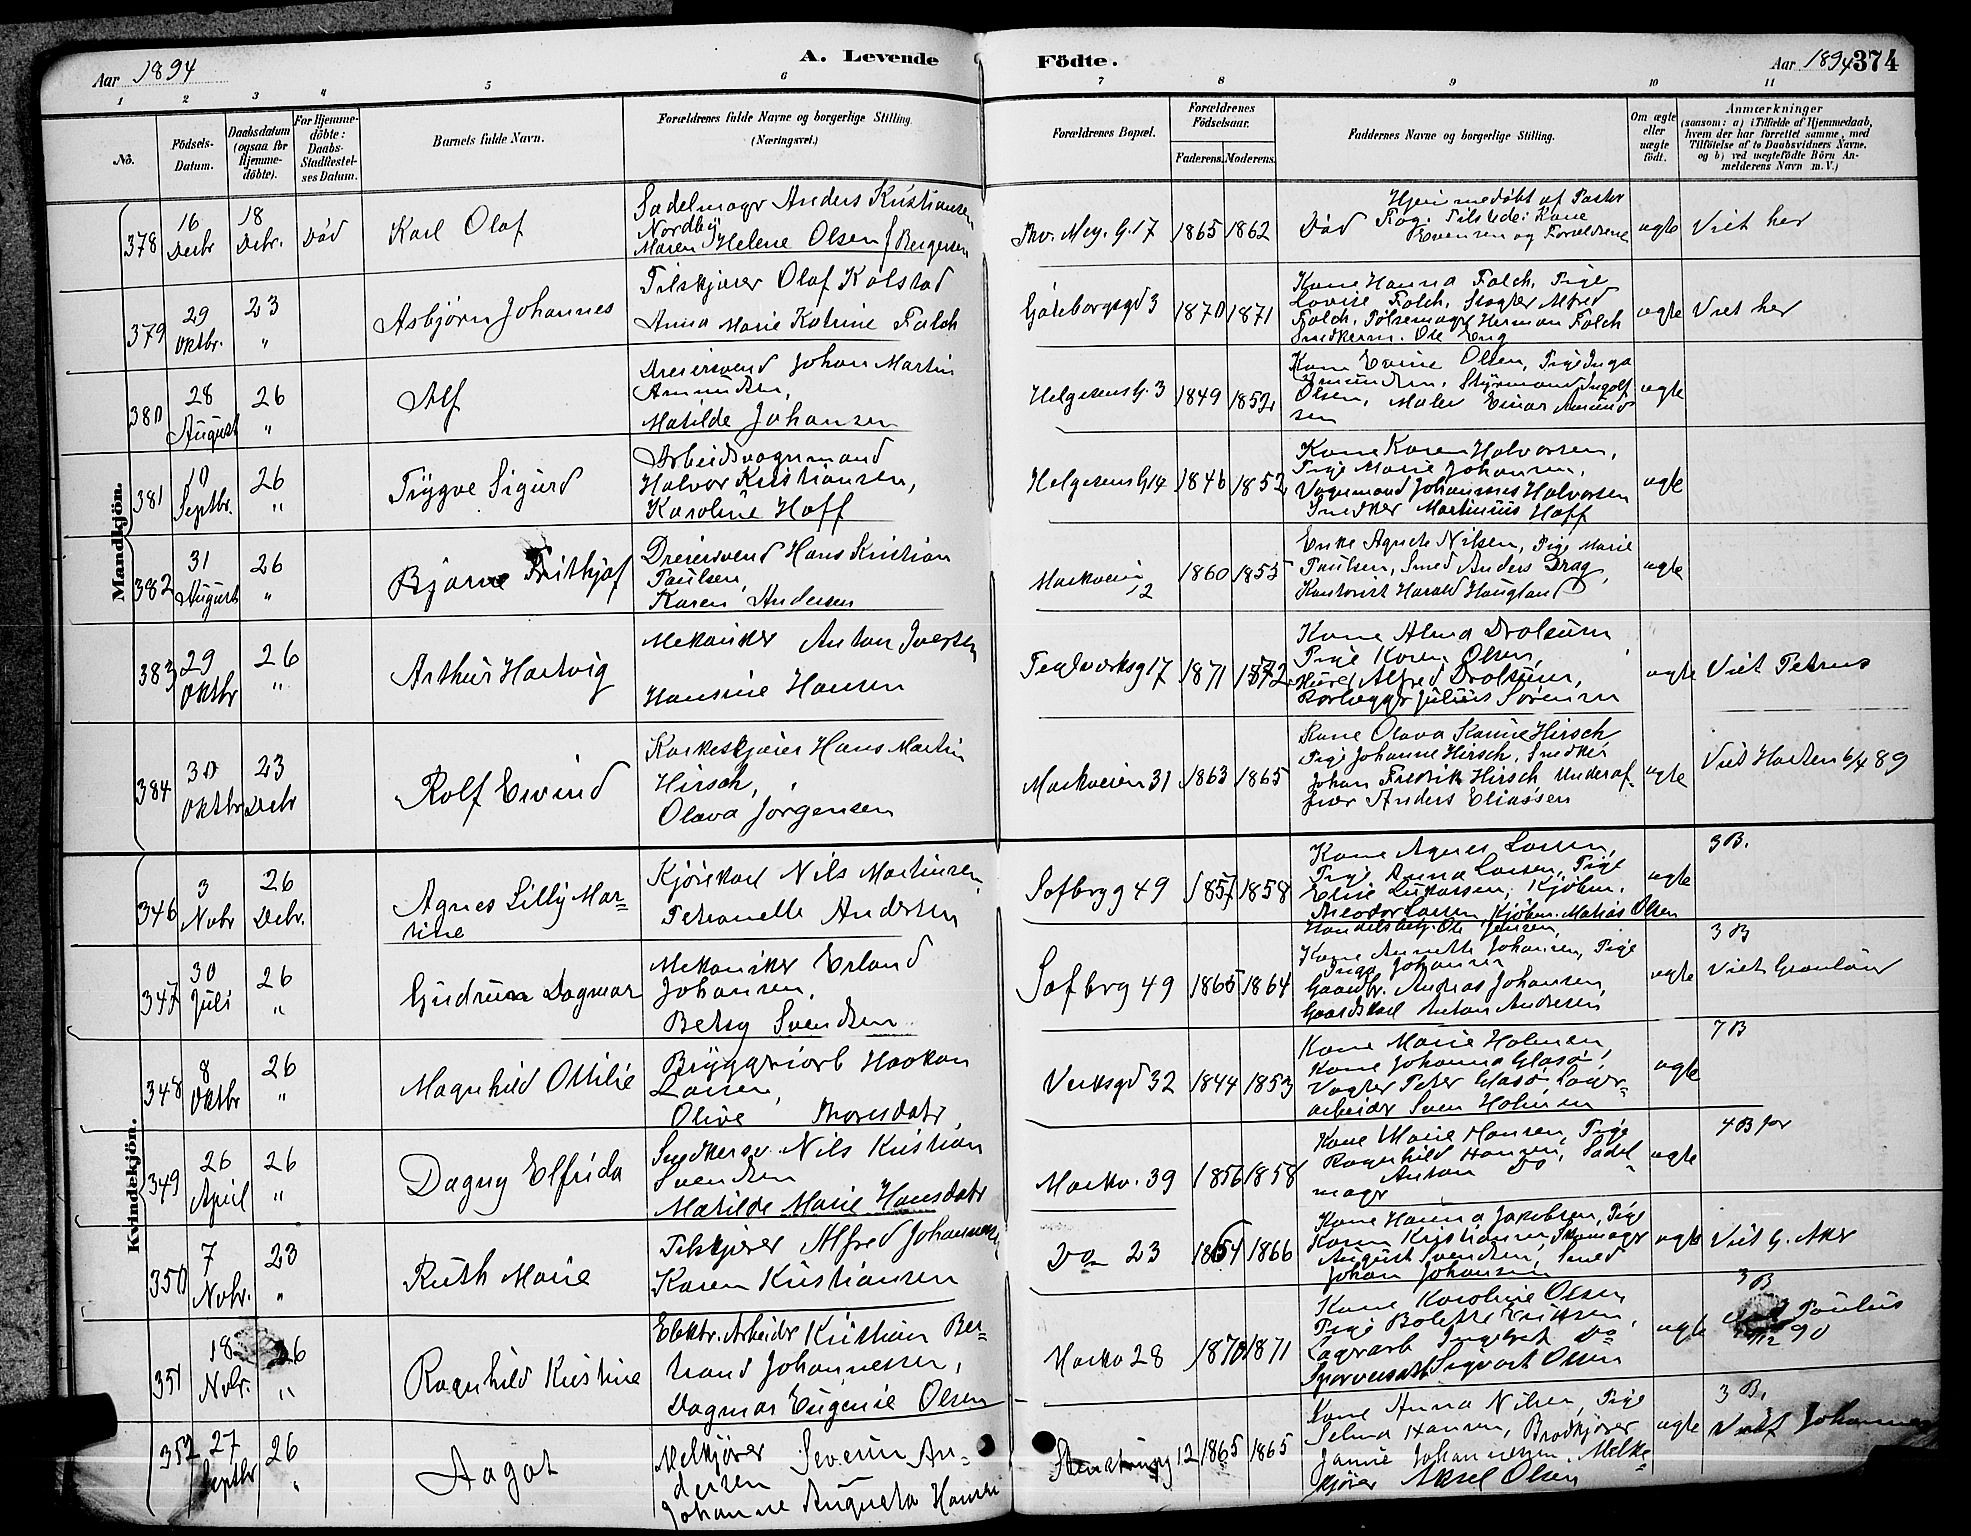 Aar 1894
A. Levende
Födte.
Aar 1894
374
1 2 3 4 5 6 7 8 9 10 11
No.
Födsels-
Datum.
Daabsdatum
(ogsaa for
Hjemme-
döbte).
For Hjemme-
döbte:
Daabs-
Stadfæstel-
ses Datum.
Barnets fulde Navn.
Forældrenes fulde Navne og borgerlige Stilling.
(Næringsvei.)
Forældrenes Bopæl.
Forældrenes
Födselsaar.
Faderens.
Moderens.
Faddernes Navne og borgerlige Stilling.
Om ægte
eller
uægte
födt.
Anmærkninger
(saasom: a) i Tilfælde af Hjemmedaab,
hvem der har forrettet samme, med
Tilföielse af to Daabsvidners Navne,
og b) ved uægtefödte Börn An-
melderens Navn m. V.)
Mandkjön.
378
16
Decbr
18
Decbr.
Död
Karl Olaf
Sadelmagr Anders Kristiansen
Nordby
Maren Helene Olsen f Bergersen
1865 1862
Hjemmedöbt af Pastor
Död
Evensen og Forældrene
ægte
Viet her
379
29
Oktbr.
23
"
Asbjørn Johannes
Tilskjærer Olaf Kolstad
Anna Marie Katrine Falch
Göteborgsgd 3
1870 1871
Kone Hanna Falch, Pige
Lovise Falch, Slagter Alfred
Falch, Pölsemagr Herman Falch
Snedkerm. Ole Eng
ægte
Viet her
380
28
August
26
"
Alf
Dreiersvend Johan Martin
Amundsen,
Matilde Johansen
Helgesens G. 3
1849 1852
Kone Evine Olsen, Pige Inga
Amundsen, Styrmand Ingolf
Olsen, Maler Einar Amund
sen
ægte
381
10
Septbr.
26
"
Trygve Sigurd
Arbeidsvognmand
Halvor Kristiansen,
Karoline Hoff
Helgesens G 14
1846 1852
Kone Karen Halvorsen,
Pige Marie Johansen,
Vognmand Johannes Halvorsen
Snedker Martinius Hoff
ægte
382
31
August
26
"
Bjarne Frithjof
Dreiersvend Hans Kristian
Paulsen,
Karen Andersen
Markveien
12
1860 1855
Enke Agnete Nilsen, Pige Marie
Paulsen, Smed Anders Drag,
Kontorist Harald Haugland
ægte
383
29
Oktbr
26
"
Arthur Hartvig
Mekaniker Anton Iversen
Hansine Hansen
Teglverksg 17
1871 1872
Kone Alma Drolsum
Pige Karen Olsen,
Alfred Drolsum,
Rörlægger Julius Sörensen
ægte
Viet Petrus
384
30
Oktbr
23
Decbr
Rolf Eivind
Korkeskjærer Hans Martin
Hirsch,
Olava Jörgensen
Markveien 31
1863 1865
Kone Olava Kamie Hirsch
Pige Johanne Hirsch, Snedker
Johan Fredrik Hirsch Underof-
ficer Anders Eliassen
ægte
Viet Horten 6/4 89
Kvindekjön.
346
3
Nobr
26
Decbr.
Agnes Lilly Mar=
tine
Kjörekarl Nils Martinsen
Petronelle Andersen
Sofbrgg 49
1857 1858
Kone Agnes Larsen,
Pige Anna Larsen, Pige
Elise Lukassen, Kjöbm.
Theodor Larsen, Kjöbm. Matias Olsen
ægte
3 B.
347
30
Juli
26
"
Gudrun Dagmar
Mekaniker Erland
Johansen,
Betsy Svendsen
Sofbrg 49
1865 1864
Handelsbetj. Ole Jensen,
Kone Annette Johansen, Pige
Inga Johansen
Gaardbr. Andreas Johansen,
Gaardskarl Anton Andersen
ægte
3 B
Viet Grönland
348
8
Oktbr
26
"
Magnhild Ottilie
Bryggriarb Haakon
Larsen,
Olive Thoresdatr
Verksgd 32
1844 1853
Kone Marie Holmen,
Kone Johanna Glasö,
Vogter Peter Glasö, Lager-
arbeider Sven Holmen
ægte
7 B
349
26
April
26
"
Dagny Elfrida
Snedkersv. Nils Kristian
Svendsen
Matilde Marie Hansdatr
Markv. 39
1856 1858
Kone Marie Hansen, Pige
Ragnhild Hansen, Sadel
magr Anton Do
ægte
4 B för
350
7
Nobr.
23
"
Ruth Marie
Tilskjærer Alfred Johannesen
Karen Kristiansen
Do 23
1864 1866
Kone Hanna Jakobsen, Pige
Karen Kristiansen, Skomager
August Svendsen, Smed
Johan Johansen
ægte
Viet G. Aker
351
18
Novbr.
26
"
Ragnhild Kristine
Elektr. Arbeider Kristian Ber=
trand Johannessen,
Dagmar Eugenie Olsen
Markv 28
1870 1871
Kone Karoline Olsen
Pige Bolette Eriksen,
Lagerarb Ingebret Do
Sporveisarb Sigvart Olsen
ægte
3 B
Viet Paulus
90
352
27
Septbr
26
"
Aagot
Melkjører Severin An-
dersen
Johanne Augusta Hansen
12
1865 1865
Kone Anna Nilsen, Pige
Selma Hansen, Brödkjører
Johannessen, Melke=
kjører Aksel Olsen
ægte
3 B.
Viet Johannes